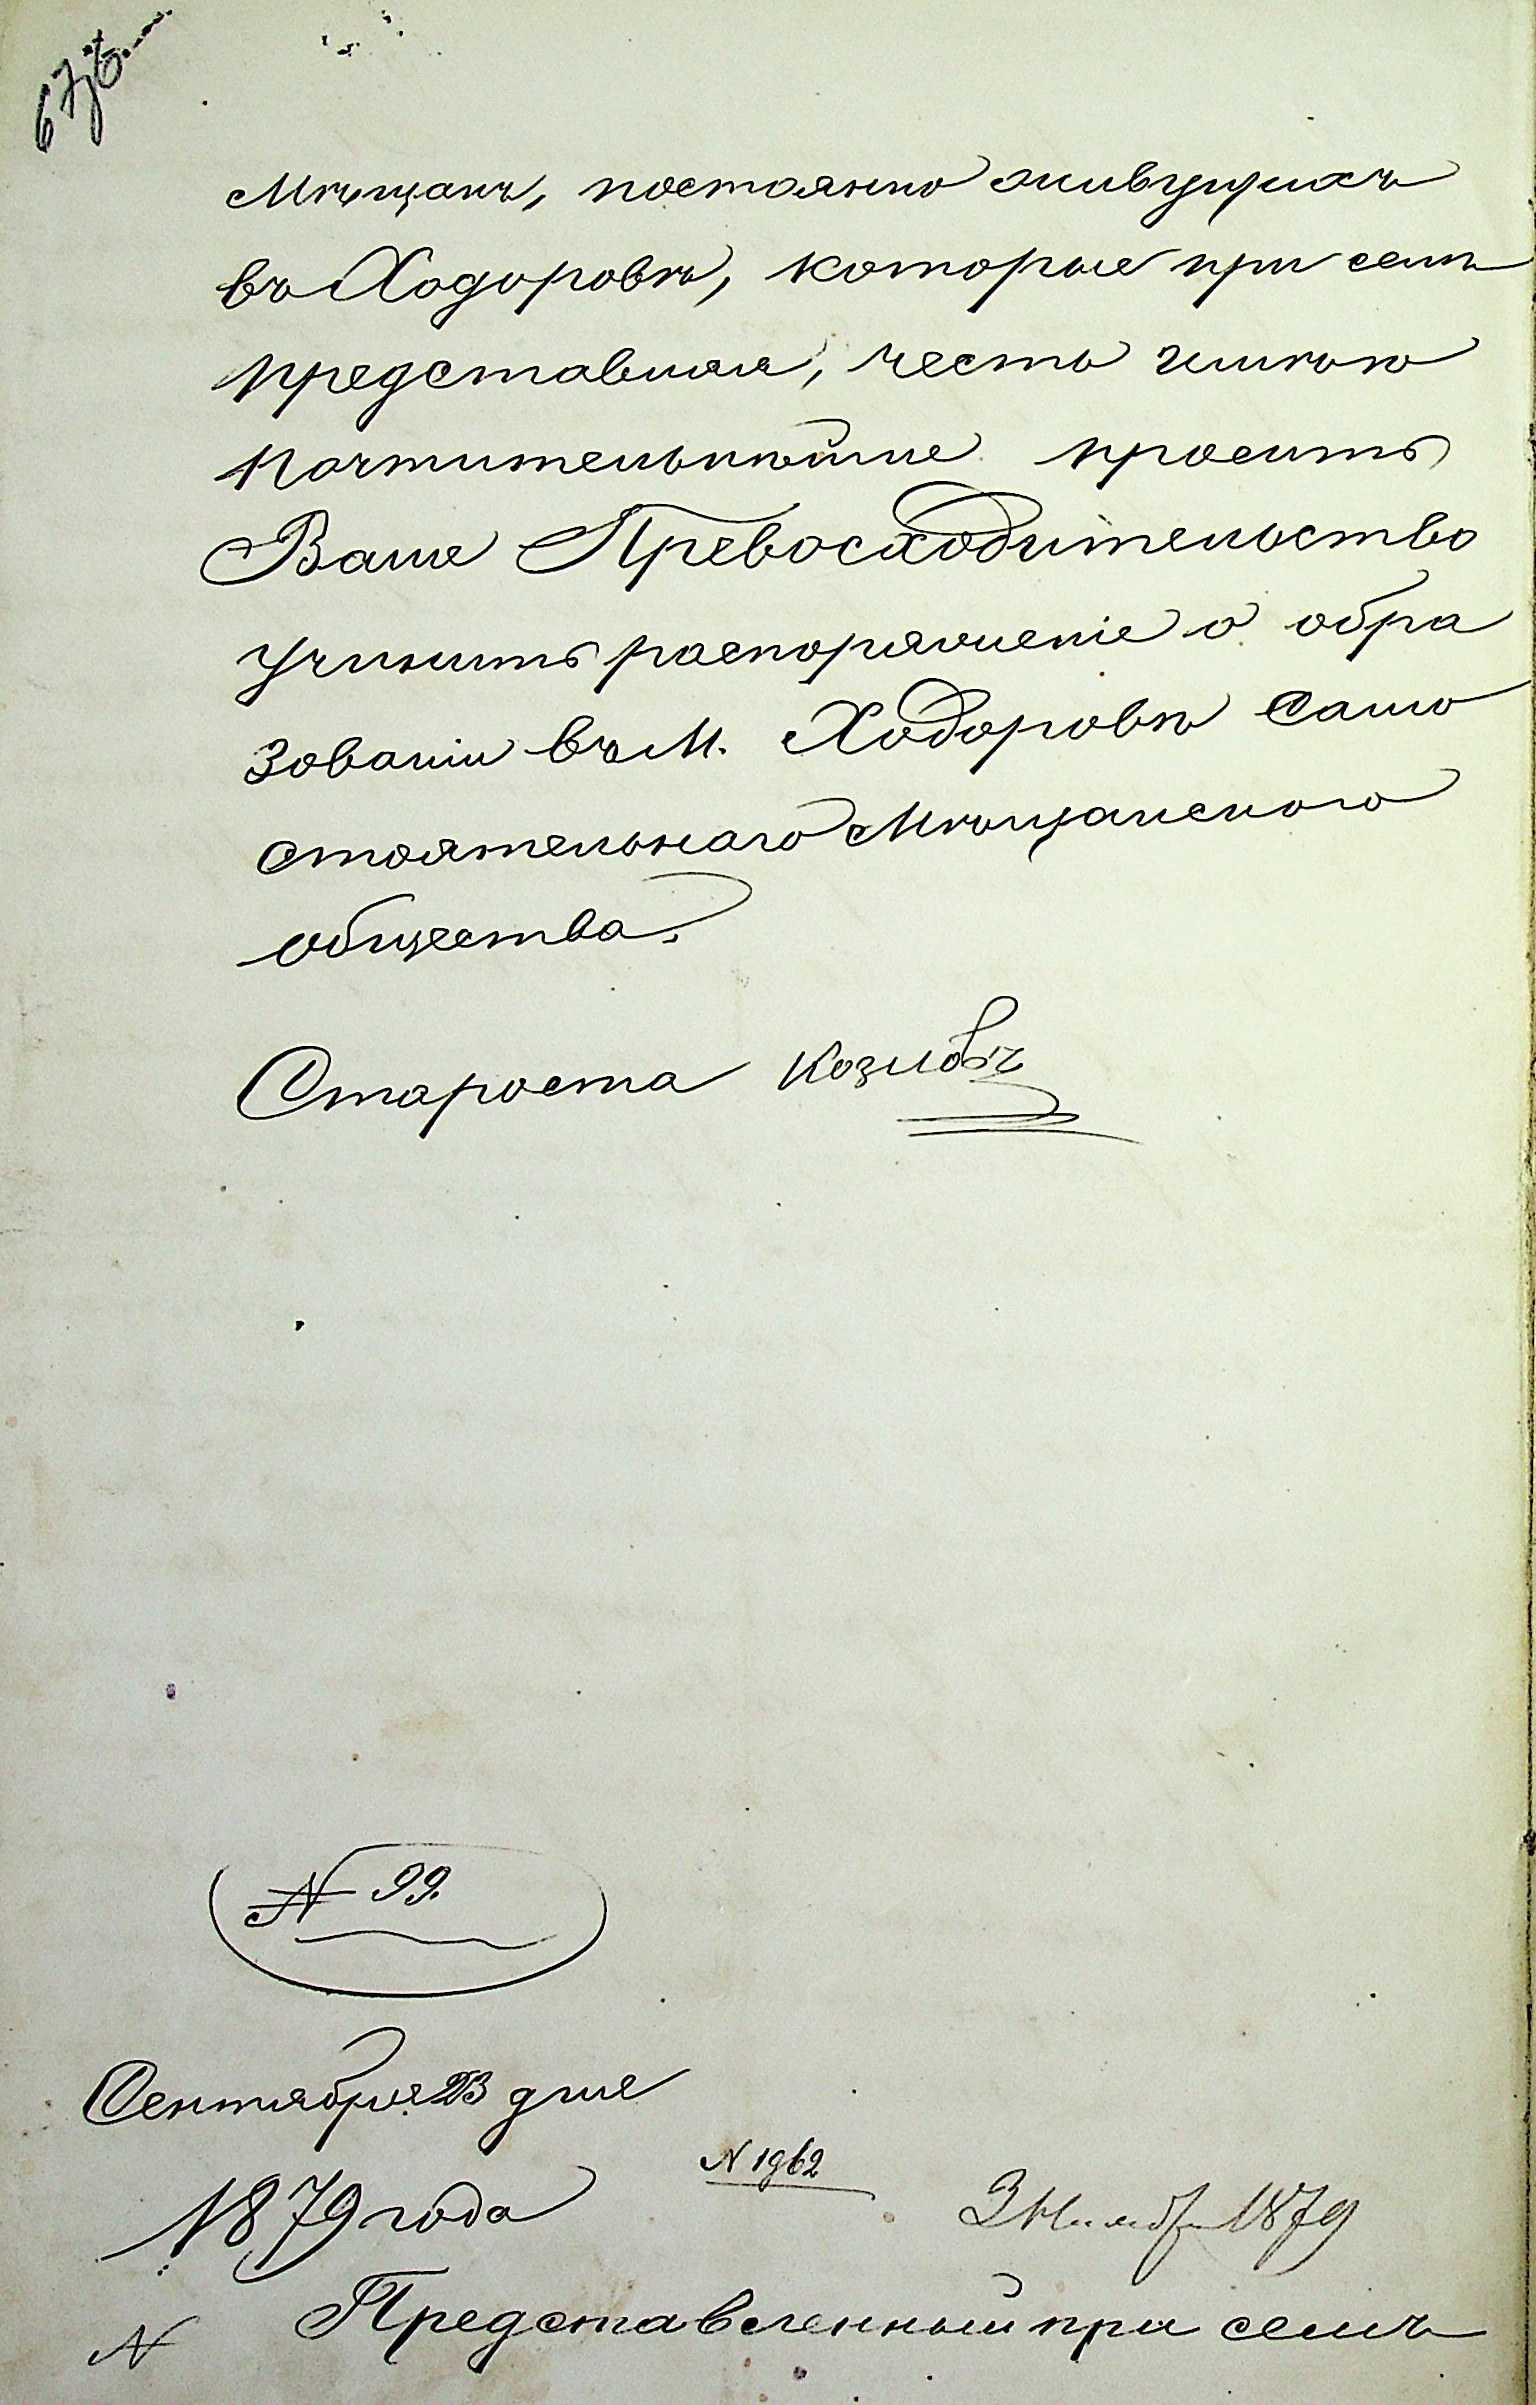 67об.
Мѣщанъ, постоянно живущихъ
въ Ходоровѣ, которые при семъ
представляя, честь имѣю
почтительнѣйше просить
Ваше Превосходительство
учинить распоряженіе о обра
зованіи въ М. Ходоровѣ само
стоятельнаго Мѣщанскаго
общества.
Староста Козловъ
№ 99.
Сентября 23 дня
1879 года
N 1962
3 Ноября 1879
N Представленный при семъ